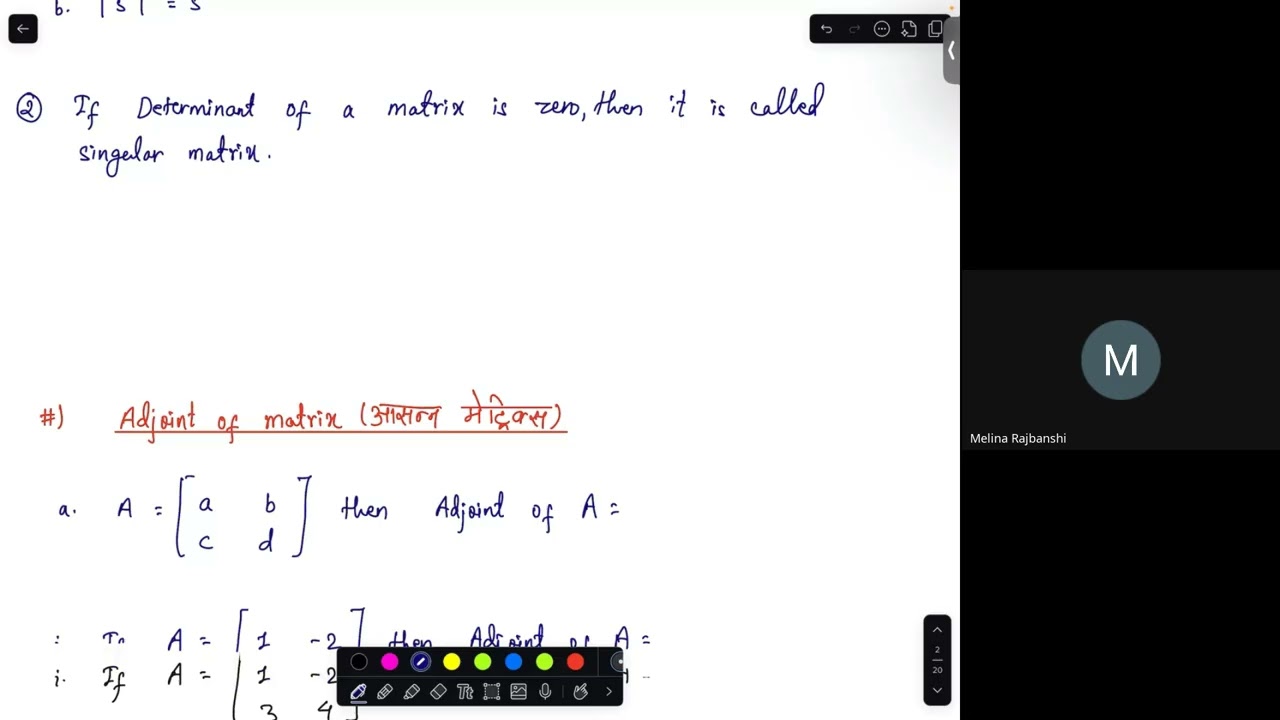 b. |5| = 5
② If Determinant of a matrix is zero, then it is called
singular matrix.
#) Adjoint of matrix (आसन्न मेट्रिक्स)
a. A = [a b
c d] then Adjoint of A =
A = [1 -2] then Adjoint of A =
i. If A = [1 -2
3 4
Tt
2
20
M
Melina Rajbanshi